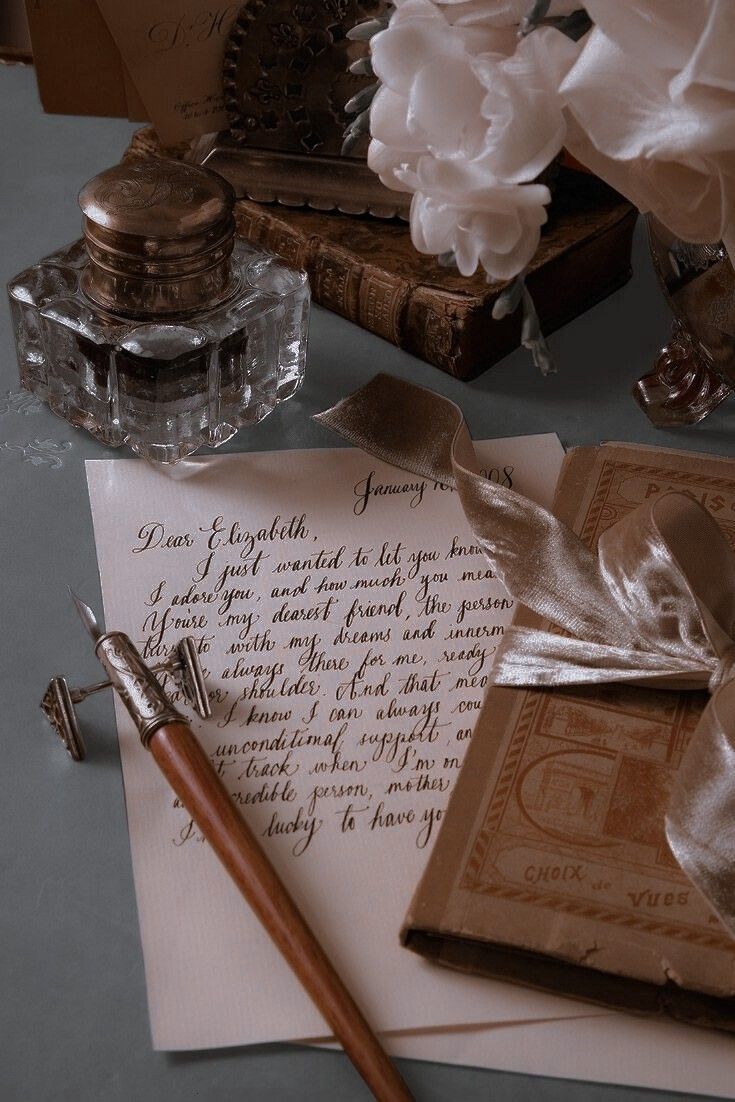 D. H
Office Ho
January 1 208
Dear Elizabeth,
I just wanted to let you know
I adore you, and how much you mea
You're my dearest friend, the person
to with my dreams and innerm
always there for me, ready
or shoulder. And that mea
I know I can always cou
unconditional support, an
track when I'm on
credible person, mother
I lucky to have yo
PARIS
CHOIX de VUES